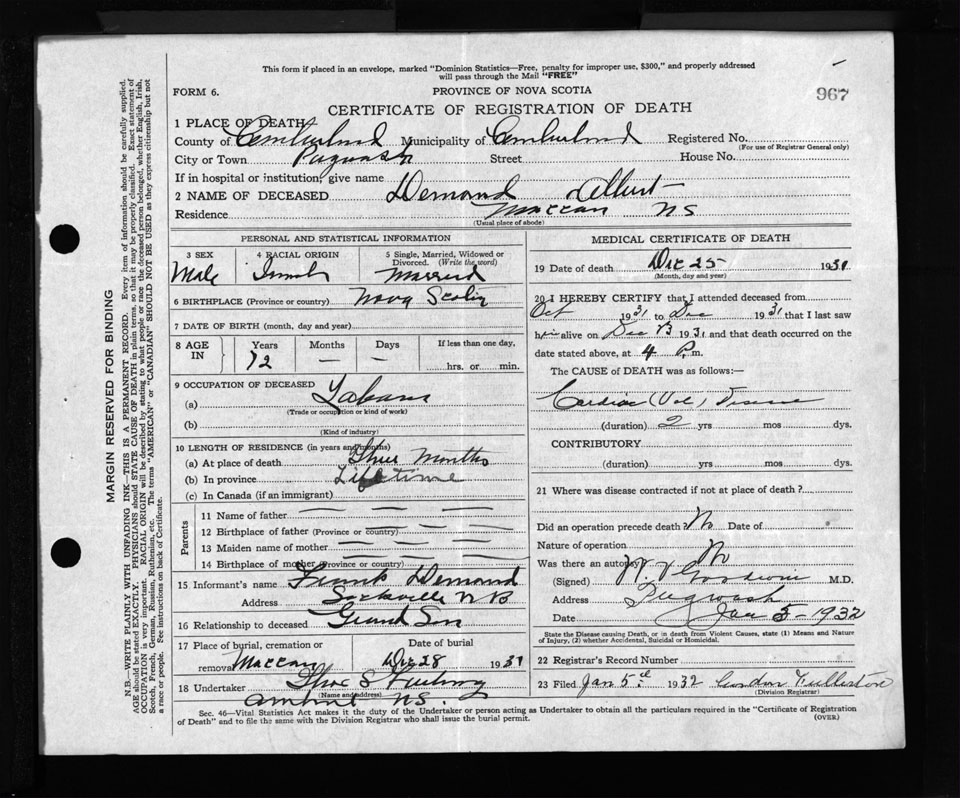 This form if placed in an envelope, marked "Dominion Statistics—Free, penalty for improper use, $300," and properly addressed
will pass through the Mail "FREE"
FORM 6. PROVINCE OF NOVA SCOTIA
967
CERTIFICATE OF REGISTRATION OF DEATH
1 PLACE OF DEATH
County of Cumberland Municipality of Cumberland Registered No.
(For use of Registrar General only)
City or Town Pugwash Street House No.
If in hospital or institution, give name
2 NAME OF DECEASED Demond Albert
Residence Maccan NS
(Usual place of abode)
PERSONAL AND STATISTICAL INFORMATION
3 SEX 4 RACIAL ORIGIN 5 Single, Married, Widowed or
Divorced. (Write the word)
Male Married
6 BIRTHPLACE (Province or country) Nova Scotia
7 DATE OF BIRTH (month, day and year)
8 AGE IN Years Months Days If less than one day,
72 — — hrs. or min.
9 OCCUPATION OF DECEASED
(a)
(Trade or occupation or kind of work)
(b)
(Kind of industry)
10 LENGTH OF RESIDENCE (in years and months)
(a) At place of death Three Months
(b) In province Lifetime
(c) In Canada (if an immigrant)
Parents
11 Name of father — — —
12 Birthplace of father (Province or country) — — —
13 Maiden name of mother — — —
14 Birthplace of mother (Province or country) — — —
15 Informant's name Frank Demond
Address Sackville NB
16 Relationship to deceased Grand Son
17 Place of burial, cremation or Date of burial
removal Maccan Dec 28 1931
18 Undertaker
(Name and address)
Amherst NS.
MEDICAL CERTIFICATE OF DEATH
19 Date of death Dec 25 1931
(Month, day and year)
20 I HEREBY CERTIFY that I attended deceased from
Oct 1931 to Dec 1931 that I last saw
him alive on Dec 1931 and that death occurred on the
date stated above, at 4 P.m.
The CAUSE of DEATH was as follows:—
Cardiac (Val) Disease
(duration) 2 yrs mos dys.
CONTRIBUTORY
(duration) yrs mos dys.
21 Where was disease contracted if not at place of death?
Did an operation precede death? No Date of
Nature of operation
Was there an autopsy No
(Signed) M.D.
Address Pugwash
Date Jan 5-1932
State the Disease causing Death, or in death from Violent Causes, state (1) Means and Nature
of Injury, (2) whether Accidental, Suicidal or Homicidal.
22 Registrar's Record Number
23 Filed Jan 5th 1932 Gordon Fullerton
(Division Registrar)
Sec. 46—Vital Statistics Act makes it the duty of the Undertaker or person acting as Undertaker to obtain all the particulars required in the "Certificate of Registration
of Death" and to file the same with the Division Registrar who shall issue the burial permit.
(OVER)
MARGIN RESERVED FOR BINDING
N.B.—WRITE PLAINLY WITH UNFADING INK—THIS IS A PERMANENT RECORD. Every item of information should be carefully supplied.
AGE should be stated EXACTLY. PHYSICIANS should STATE CAUSE OF DEATH in plain terms, so that it may be properly classified. Exact statement of
OCCUPATION is very important. RACIAL ORIGIN will be described by stating to what people or race the deceased person belonged, whether English, Irish,
Scotch, French, German, Russian, Ruthenian, etc. The terms "AMERICAN" or "CANADIAN" SHOULD NOT BE USED as they express citizenship but not
a race or people. See instructions on back of Certificate.